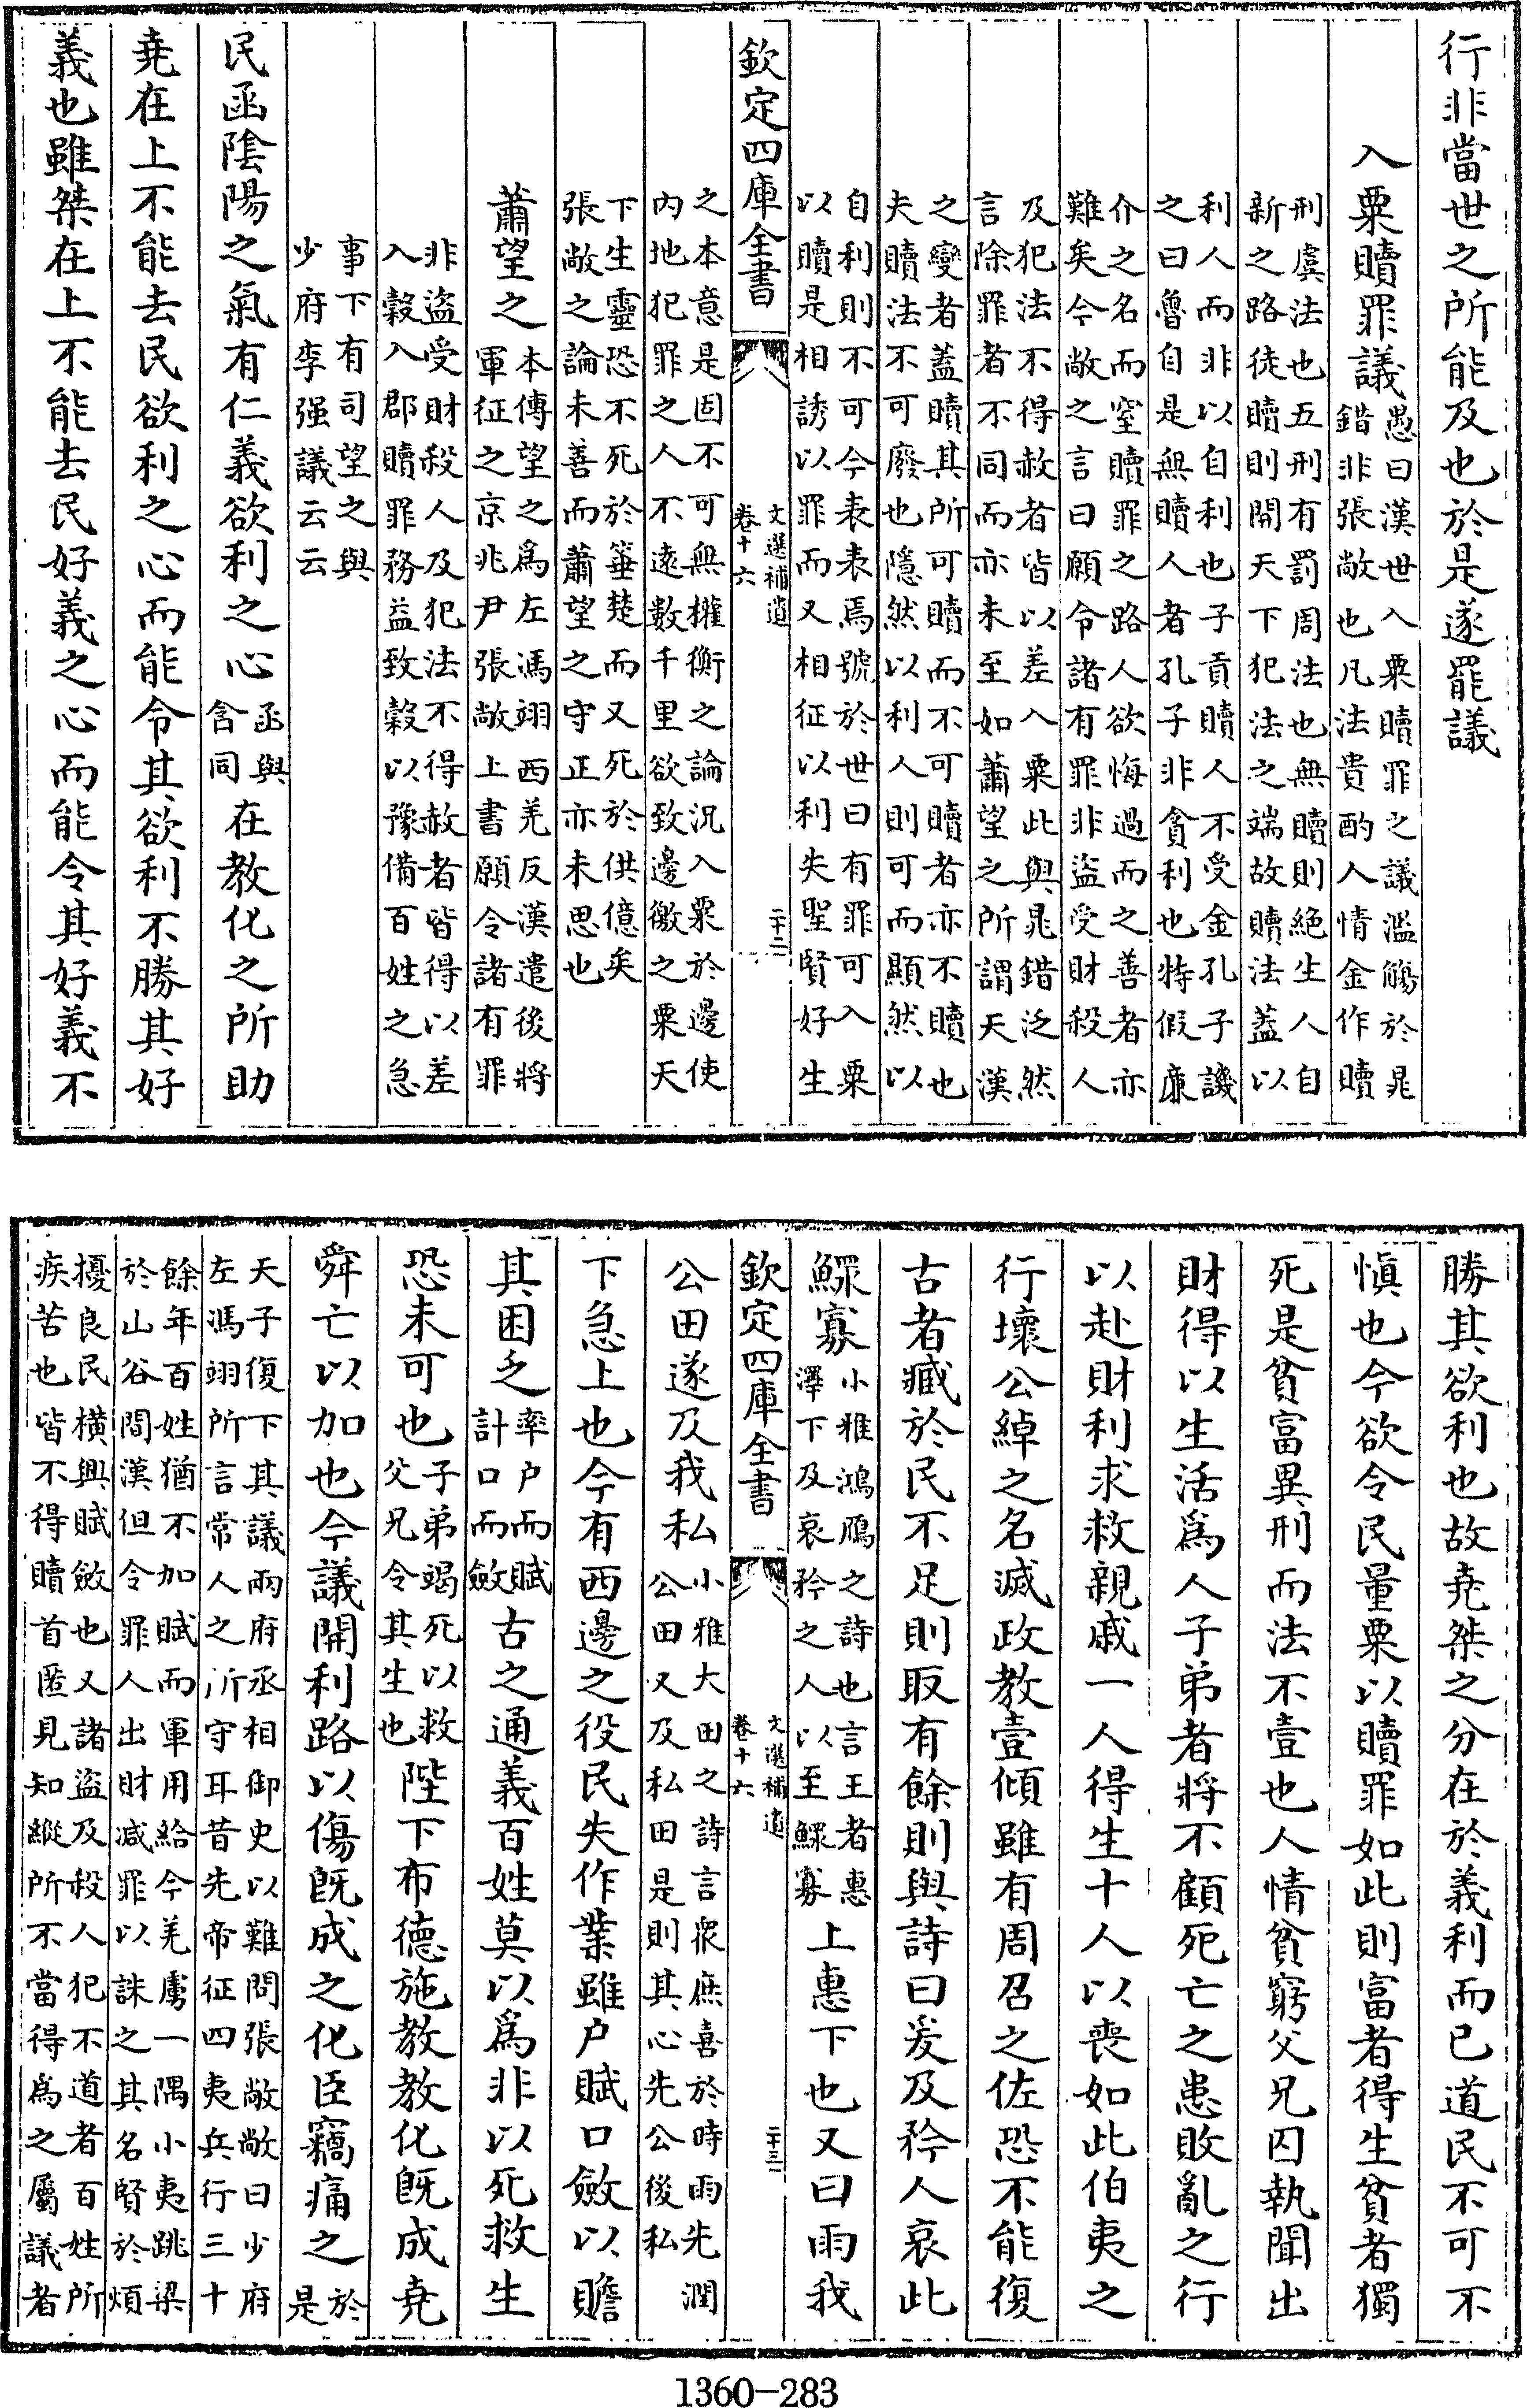 行非當世之所能及也於是遂罷議
入粟贖罪議愚曰漢世入粟贖罪之議濫觴於晁
錯非張敞也凡法貴酌人情金作贖
刑虞法也五刑有罰周法也無贖則絕生人自
新之路徒贖則開天下犯法之端故贖法蓋以
利人而非以自利也子貢贖人不受金孔子譏
之曰魯自是無贖人者孔子非貪利也特假廉
介之名而窒贖罪之路人欲悔過而之善者亦
難矣今敞之言曰願令諸有罪非盜受財殺人
及犯法不得赦者皆以差入粟此與晁錯泛然
言除罪者不同而亦未至如蕭望之所謂天漢
之變者蓋贖其所可贖而不可贖者亦不贖也
夫贖法不可廢也隱然以利人則可而顯然以
自利則不可今表表焉號於世曰有罪可入粟
以贖是相誘以罪而又相征以利失聖賢好生
欽定四庫全書
文選補遺
卷十六
二十二
之本意是固不可無權衡之論況入粟於邊使
內地犯罪之人不遠數千里欲致邊徼之粟天
下生靈恐不死於箠楚而又死於供億矣
張敞之論未善而蕭望之守正亦未思也
蕭望之本傳望之爲左馮翊西羌反漢遣後將
軍征之京兆尹張敞上書願令諸有罪
非盜受財殺人及犯法不得赦者皆得以差
入穀入郡贖罪務益致穀以豫備百姓之急
事下有司望之與
少府李强議云云
民函陰陽之氣有仁義欲利之心函與
含同在教化之所助
堯在上不能去民欲利之心而能令其欲利不勝其好
義也雖桀在上不能去民好義之心而能令其好義不
勝其欲利也故堯桀之分在於義利而已道民不可不
愼也今欲令民量粟以贖罪如此則富者得生貧者獨
死是貧富異刑而法不壹也人情貧窮父兄囚執聞出
財得以生活爲人子弟者將不顧死亡之患敗亂之行
以赴財利求救親戚一人得生十人以喪如此伯夷之
行壞公綽之名滅政教壹傾雖有周召之佐恐不能復
古者臧於民不足則取有餘則與詩曰爰及矜人哀此
鰥寡小雅鴻鴈之詩也言王者惠
澤下及哀矜之人以至鰥寡上惠下也又曰雨我
欽定四庫全書
文選補遺
卷十六
二十三
公田遂及我私小雅大田之詩言衆庶喜於時雨先潤
公田又及私田是則其心先公後私
下急上也今有西邊之役民失作業雖户賦口斂以贍
其困乏率户而賦
計口而斂古之通義百姓莫以爲非以死救生
恐未可也子弟竭死以救
父兄令其生也陛下布德施教教化旣成堯
舜亡以加也今議開利路以傷旣成之化臣竊痛之於
是
天子復下其議兩府丞相御史以難問張敞敞曰少府
左馮翊所言常人之所守耳昔先帝征四夷兵行三十
餘年百姓猶不加賦而軍用給今羌虜一隅小夷跳梁
於山谷間漢但令罪人出財減罪以誅之其名賢於煩
擾良民橫興賦斂也又諸盜及殺人犯不道者百姓所
疾苦也皆不得贖首匿見知縱所不當得爲之屬議者
1360-283